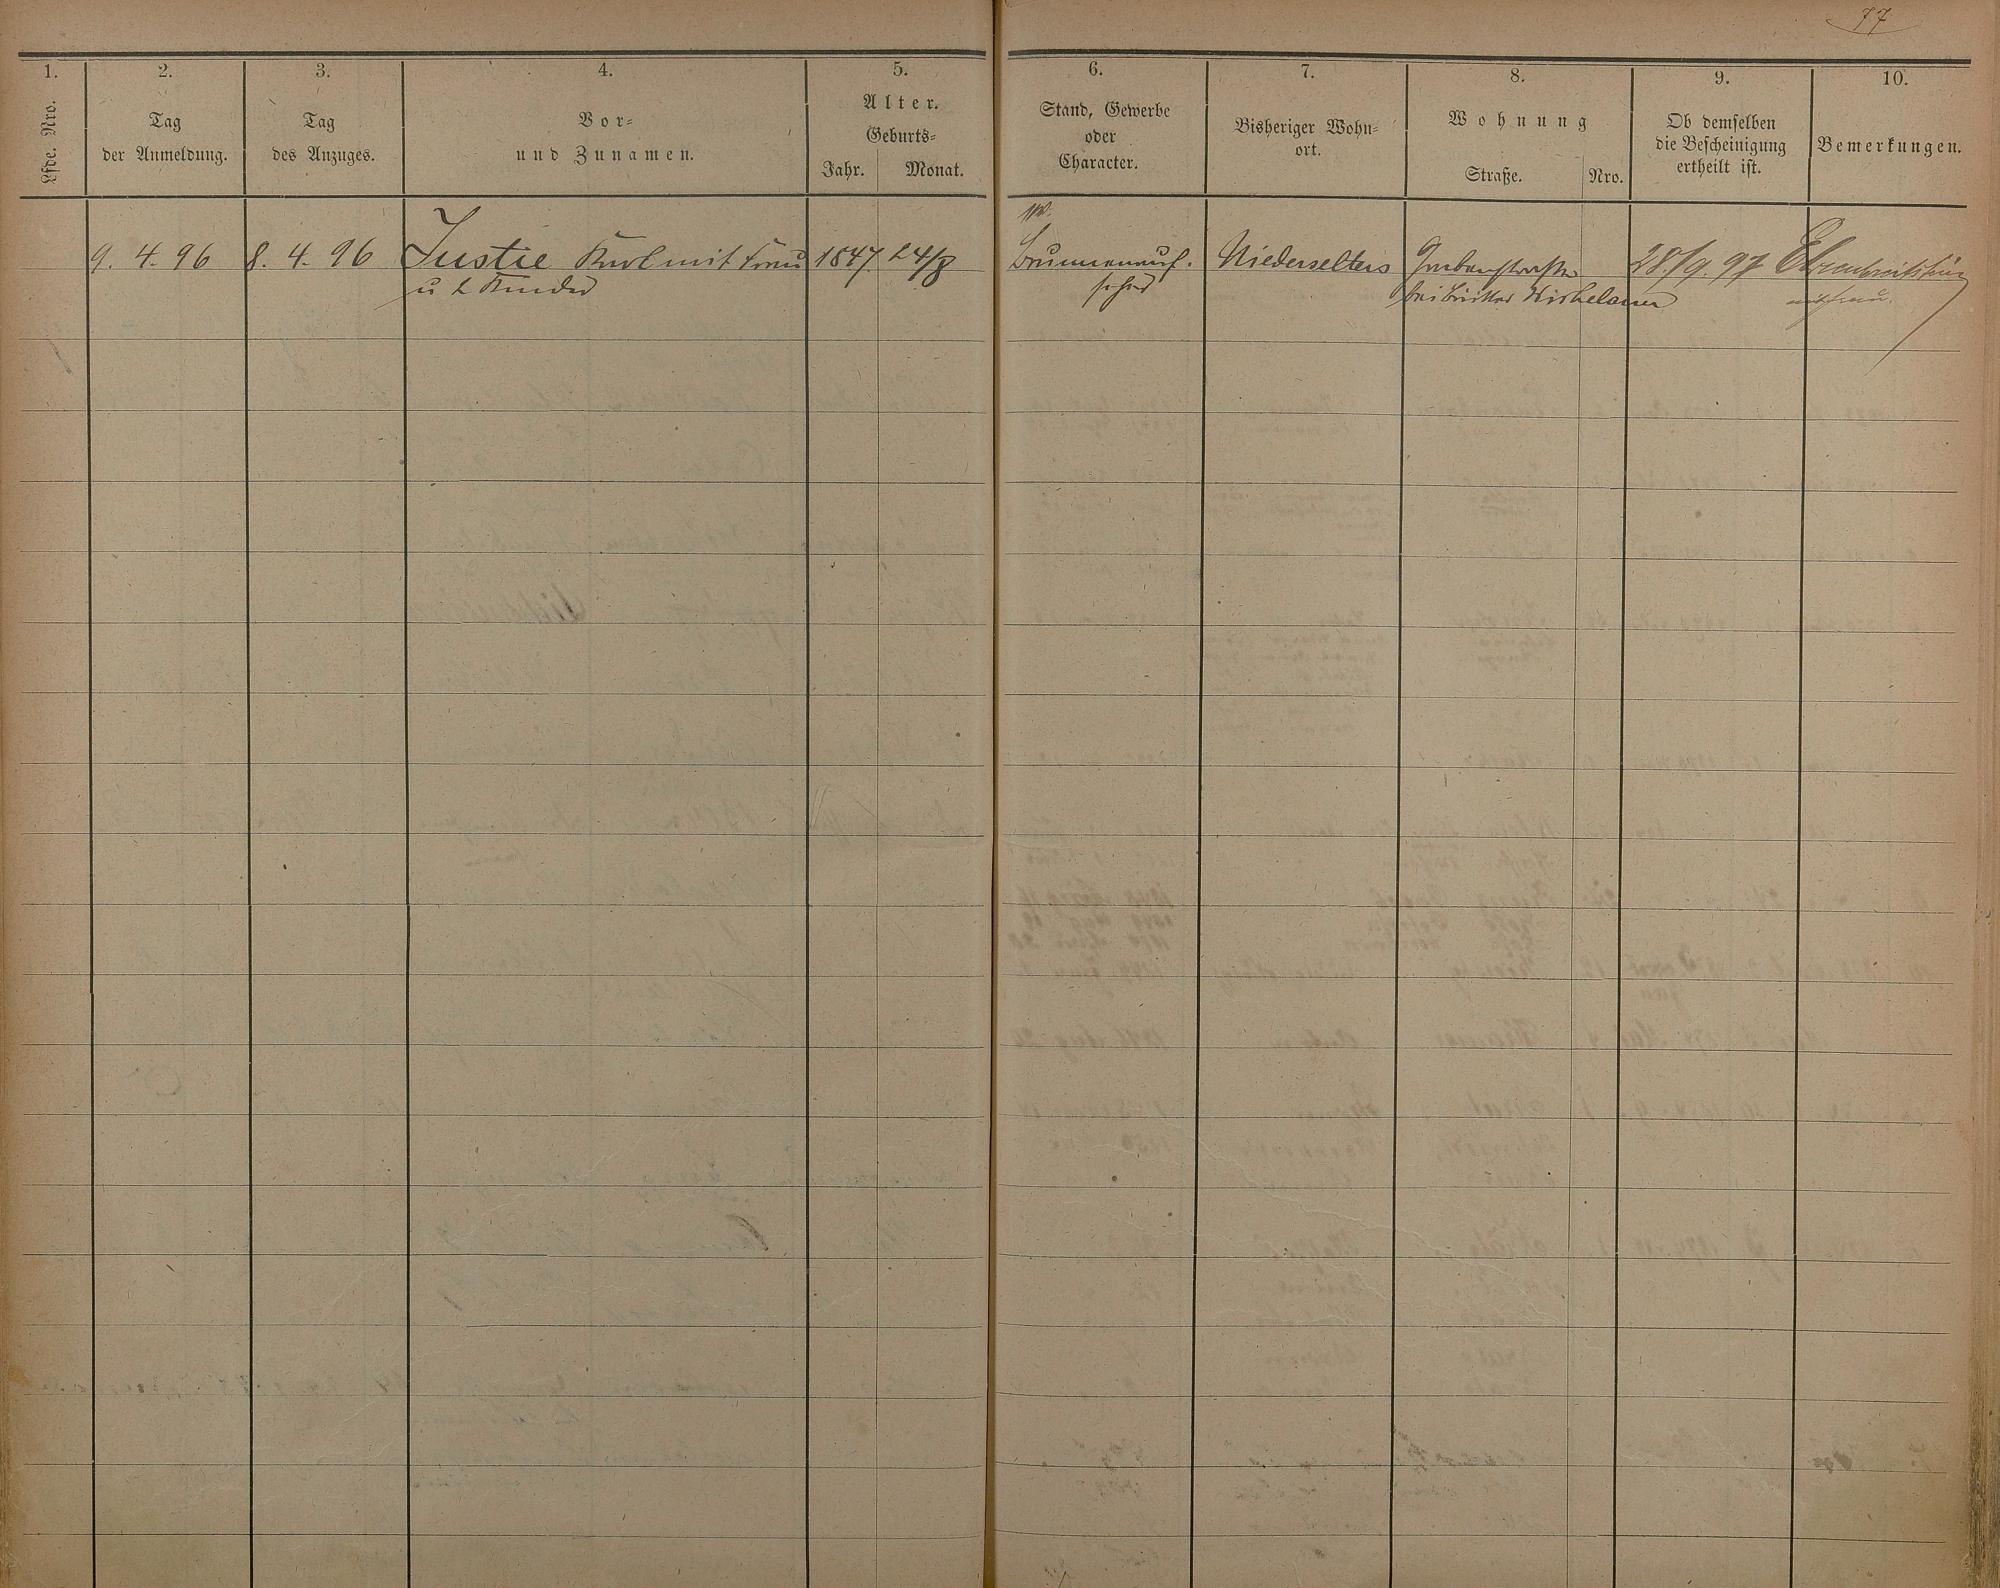 77
1.
2.
3.
4.
5.
6.
7.
8.
9.
10.
Lfde. Nro.
Tag
der Anmeldung.
Tag
des Anzuges.
Vor-
und Zunamen.
Alter.
Geburts-
Jahr. Monat.
Stand, Gewerbe
oder
Character.
Bisheriger Wohn-
ort.
Wohnung
Straße. Nro.
Ob demselben
die Bescheinigung
ertheilt ist.
Bemerkungen.
9. 4. 96 8. 4. 96 Justie Karl mit Frau 1847 24/8 Brunnenauf- Niederselters Grabenstraße 28./9. 97 Ehrenbreitstein
u 2 Kinder seher bei mit Frau.